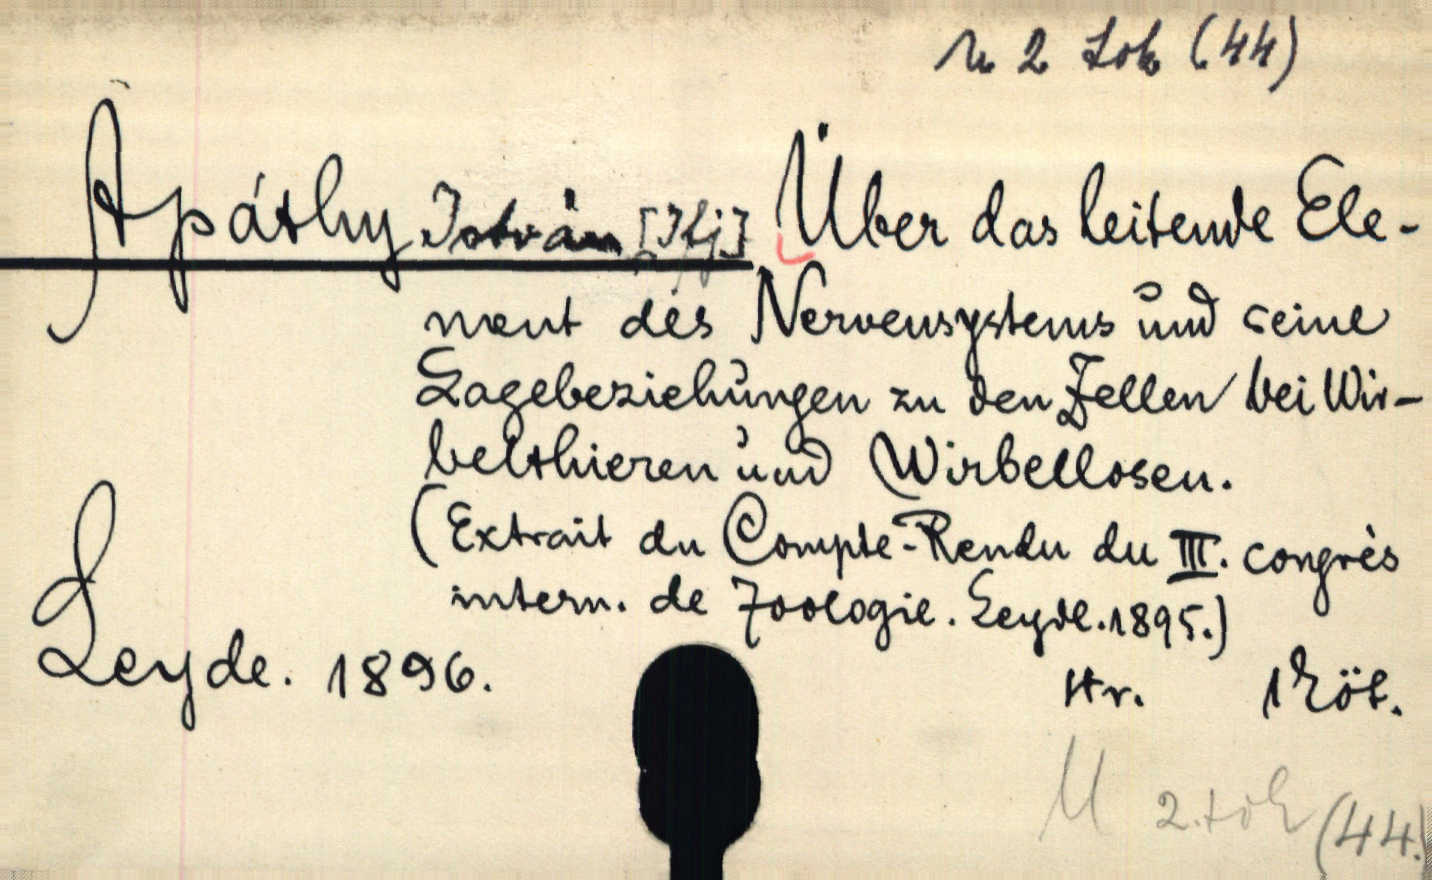 2 tok (44)
Apáthy István [Ifj] Über das leitende Ele-
ment des Nervensystems und seine
Lagebeziehungen zu den Zellen bei Wir-
belthieren und Wirbellosen.
(Extrait du Compte-Rendu du III. congrès
intern. de Zoologie. Leyde. 1895.)
Leyde. 1896.
8r. 1 köt.
M 2. tok (44.)